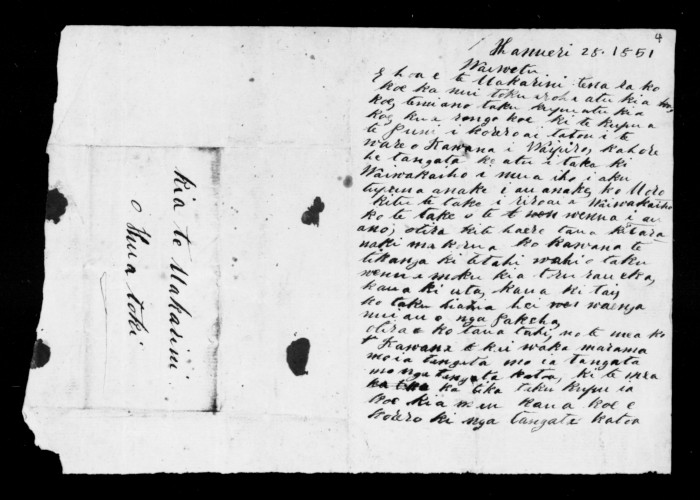 4
Hanueri 28. 1851
Waiwetu
E hoa e te Makarini tena ra ko
koe ka nui toku aroha atu kia koe,
koe, tenei ano taku kupu atu kia
koe, kua rongo koe ki te kupu a
te i korero ai tatou i te
ware o Kawana i kahore
he tangata ke atu i taka ki
Waiwakaiho i mua iho i aku
tupuna anake i au anake, ko
te take i riro ai a Waiwakaiho
ko te take o te wenua i au
ano, otira kite haere tana
naki makorua ko kawana te
tikanga ki tetahi wahi o taku
wenua moku kia toru rau eka,
kaua ki uta, kaua ki tai,
ko taku hiahia hei waenga
nui au o nga Pakeha,
otira e ko tana tahi no te mea ko
Kawana te kai waka marama
mo ia tangata mo ia tangata
mo nga tangata katoa, ki te mea
ka tika taku kupu ia
koe kia mau kaua koe e
korero ki nga tangata katoa
kia te Makarini
o Hua toki